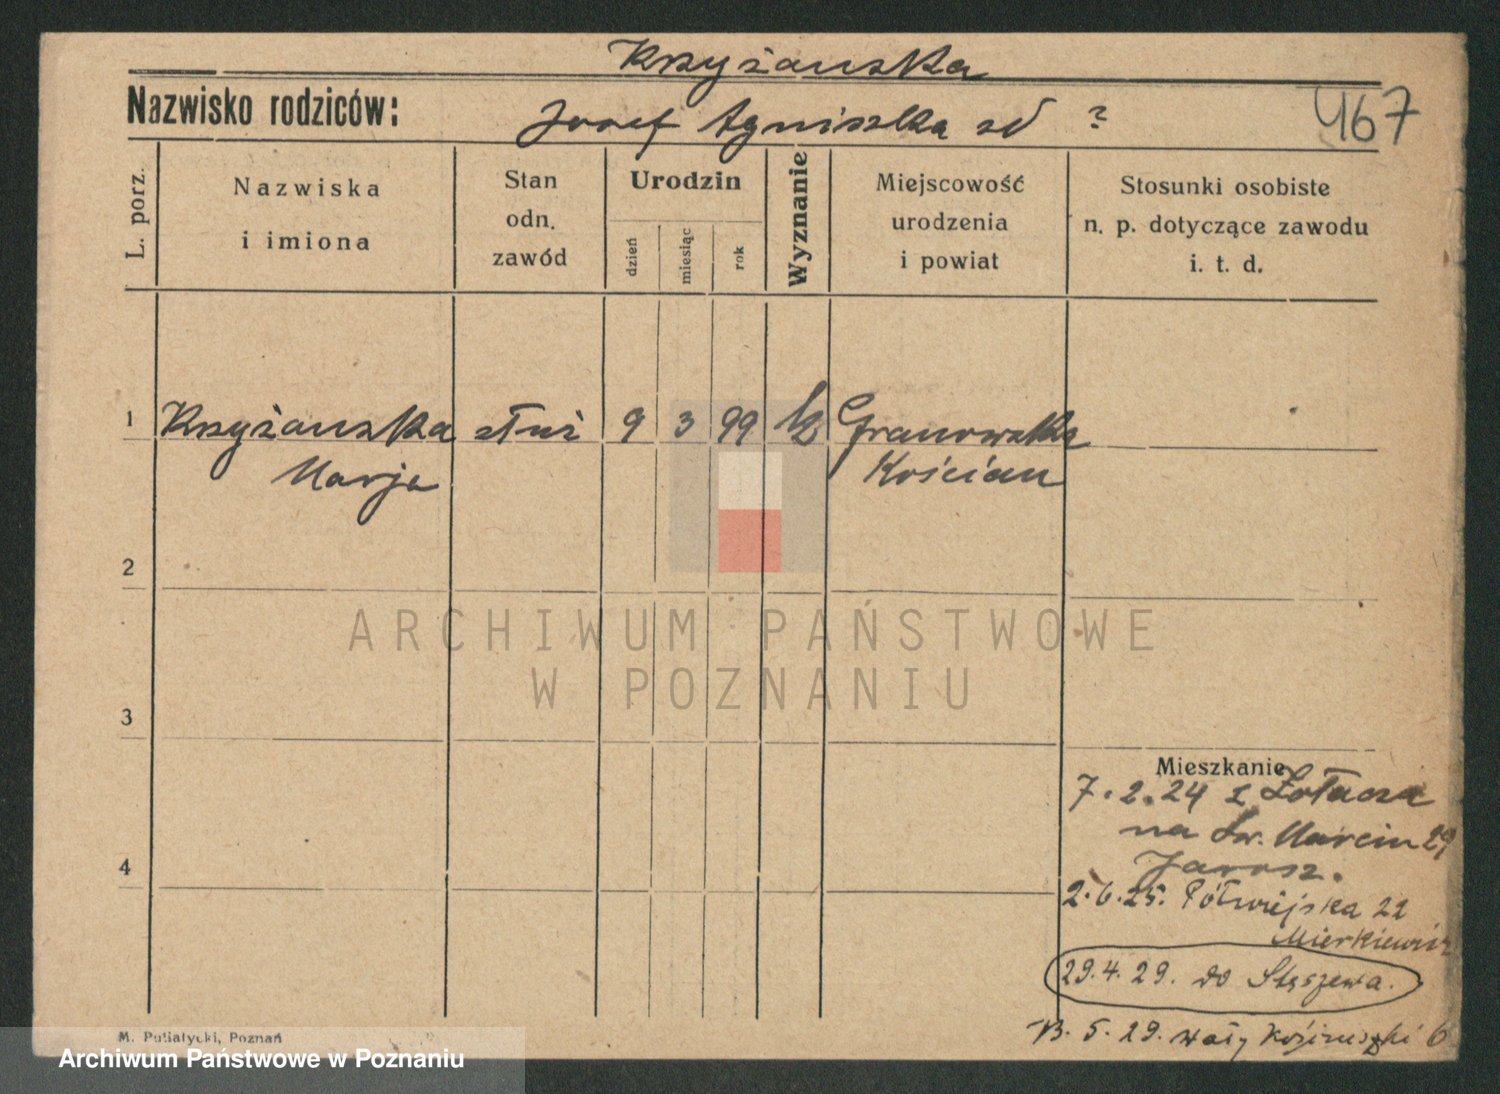 Krzyżanska
Nazwisko rodziców: Josef Agniszka zd ?
467
L. porz.
Nazwiska
i imiona
Stan
odn.
zawód
Urodzin
dzień
miesiąc
rok
Wyznanie
Miejscowość
urodzenia
i powiat
Stosunki osobiste
n. p. dotyczące zawodu
i. t. d.
1 Krzyżanska służ 9 3 99 k Granowska
Marja Kościan
2
3
4
ARCHIWUM PAŃSTWOWE
W POZNANIU
Mieszkanie
7.2.24 z Sołacza
na Św. Marcin 29
Jarosz.
2.6.25. Półwiejska 22
Mierkiewicz
29.4.29. do Stęszewa.
13.5.29. Wały Kościuszki 6
M. Putiatycki, Poznań
Archiwum Państwowe w Poznaniu